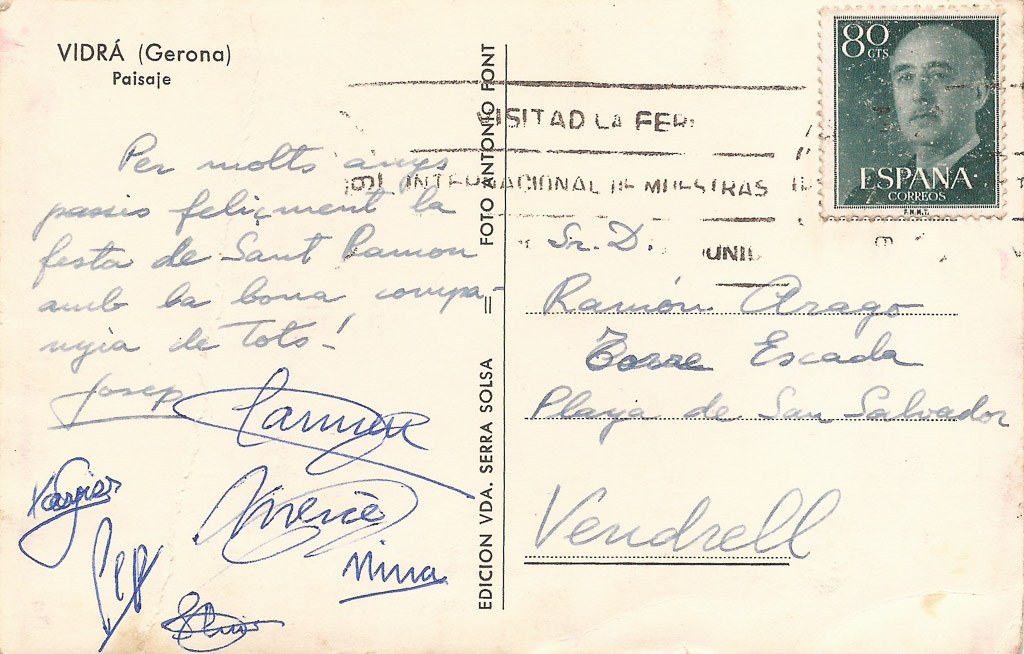 VIDRÁ (Gerona)
Paisaje
Per molts anys
passis feliçment la
festa de Sant Ramon
amb la bona compa-
nyia de Tots!
Josep
Carmen
Xavier
Mercè
Pep
Nina
EDICION VDA. SERRA SOLSA = FOTO ANTONIO FONT
VISITAD LA FERI
INTERNACIONAL DE MUESTRAS
JUNIO
80 CTS
ESPAÑA
CORREOS
F.N.M.T.
Sr. D.
Ramón Arago
Torre Escada
Playa de San Salvador
Vendrell